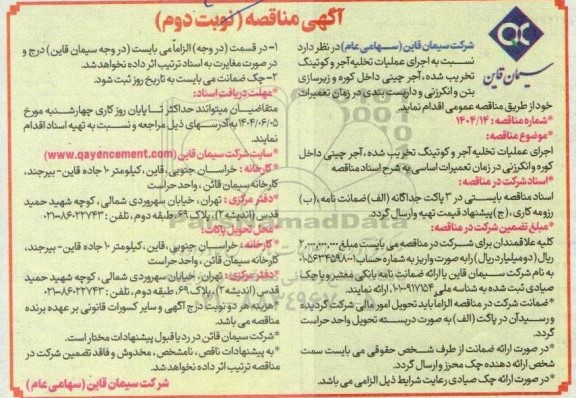 آگهی مناقصه (نوبت دوم)
سیمان قاین
شرکت سیمان قاین (سهامی عام) در نظر دارد
نسبت به اجرای عملیات تخلیه آجر و کوتینگ
تخریب شده، آجر چینی داخل کوره و زیرسازی
بتن و انکرزنی و داربست بندی در زمان تعمیرات
خود از طریق مناقصه عمومی اقدام نماید.
*شماره مناقصه: ۱۴۰۴/۱۴
*موضوع مناقصه:
اجرای عملیات تخلیه آجر و کوتینگ تخریب شده، آجر چینی داخل
کوره و انکرزنی در زمان تعمیرات اساسی به شرح اسناد مناقصه
*اسناد شرکت در مناقصه:
اسناد مناقصه بایستی در ۳ پاکت جداگانه (الف) ضمانت نامه، (ب)
رزومه کاری، (ج) پیشنهاد قیمت تهیه و ارسال گردد.
*مبلغ تضمین شرکت در مناقصه:
کلیه علاقمندان برای شرکت در مناقصه می بایست مبلغ ۲,۰۰۰,۰۰۰,۰۰۰
ریال (دو میلیارد ریال) را به صورت واریز به شماره حساب
به نام شرکت سیمان قاین یا ارائه ضمانت نامه بانکی معتبر و یا چک
صیادی ثبت شده به شناسه ملی ارائه نمایند.
*ضمانت شرکت در مناقصه الزاماً باید تحویل امور مالی شرکت گردیده
و رسید آن در پاکت (الف) به صورت دربسته تحویل واحد حراست
گردد.
*در صورت ارائه ضمانت از طرف شخص حقوقی می بایست سمت
شخص ارائه دهنده چک محرز و ارسال گردد.
*در صورت ارائه چک صیادی رعایت شرایط ذیل الزامی می باشد.
۱- در قسمت (در وجه) الزاماً می بایست (در وجه سیمان قاین) درج و
در صورت مغایرت به اسناد ترتیب اثر داده نخواهد شد.
۲- چک ضمانت می بایست به تاریخ روز ثبت شود.
*مهلت دریافت اسناد:
متقاضیان میتوانند حداکثر تا پایان روز کاری چهارشنبه مورخ
۱۴۰۴/۰۶/۰۵ به آدرسهای ذیل مراجعه و نسبت به تهیه اسناد اقدام
نمایند.
*سایت شرکت سیمان قاین (www.qayencement.com)
*کارخانه: خراسان جنوبی، قاین، کیلومتر ۱۰ جاده قاین - بیرجند،
کارخانه سیمان قاین، واحد حراست
*دفتر مرکزی: تهران، خیابان سهروردی شمالی، کوچه شهید حمید
قدس (اندیشه ۲)، پلاک ۶۹، طبقه دوم، تلفن: ۰۲۱-۸۶۰۲۲۷۴۳
*محل تحویل پاکات:
*کارخانه: خراسان جنوبی، قاین، کیلومتر ۱۰ جاده قاین - بیرجند،
کارخانه سیمان قاین، واحد حراست
*دفتر مرکزی: تهران، خیابان سهروردی شمالی، کوچه شهید حمید
قدس (اندیشه ۲)، پلاک ۶۹، طبقه دوم، تلفن: ۰۲۱-۸۶۰۲۲۷۴۳
*هزینه هر دو نوبت درج آگهی و سایر کسورات قانونی بر عهده برنده
مناقصه می باشد.
*شرکت سیمان قاین در رد یا قبول پیشنهادات مختار است.
*به پیشنهادات ناقص، نامشخص، مخدوش و فاقد تضمین شرکت در
مناقصه ترتیب اثر داده نخواهد شد.
شرکت سیمان قاین (سهامی عام)